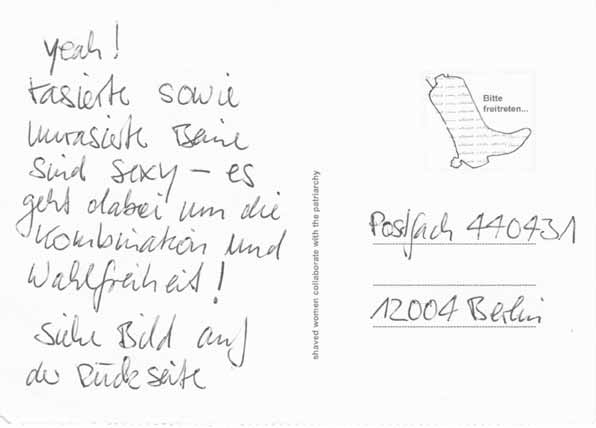 yeah!
rasierte sowie
unrasierte Beine
sind sexy – es
geht dabei um die
Kombination und
Wahlfreiheit!
siehe Bild auf
der Rückseite
Bitte
freitreten...
shaved women collaborate with the patriarchy
Postfach 440431
12004 Berlin